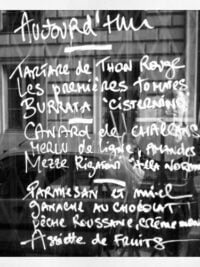 Aujourd'hui
Tartare de Thon Rouge
Les premières tomates
Burrata "Cisternino"
Canard de Challans
Merlu de ligne, Amandes
Mezze Rigatoni "Alla Norma
Parmesan et miel
Ganache au chocolat
Pêche Roussane, crème
Assiette de Fruits